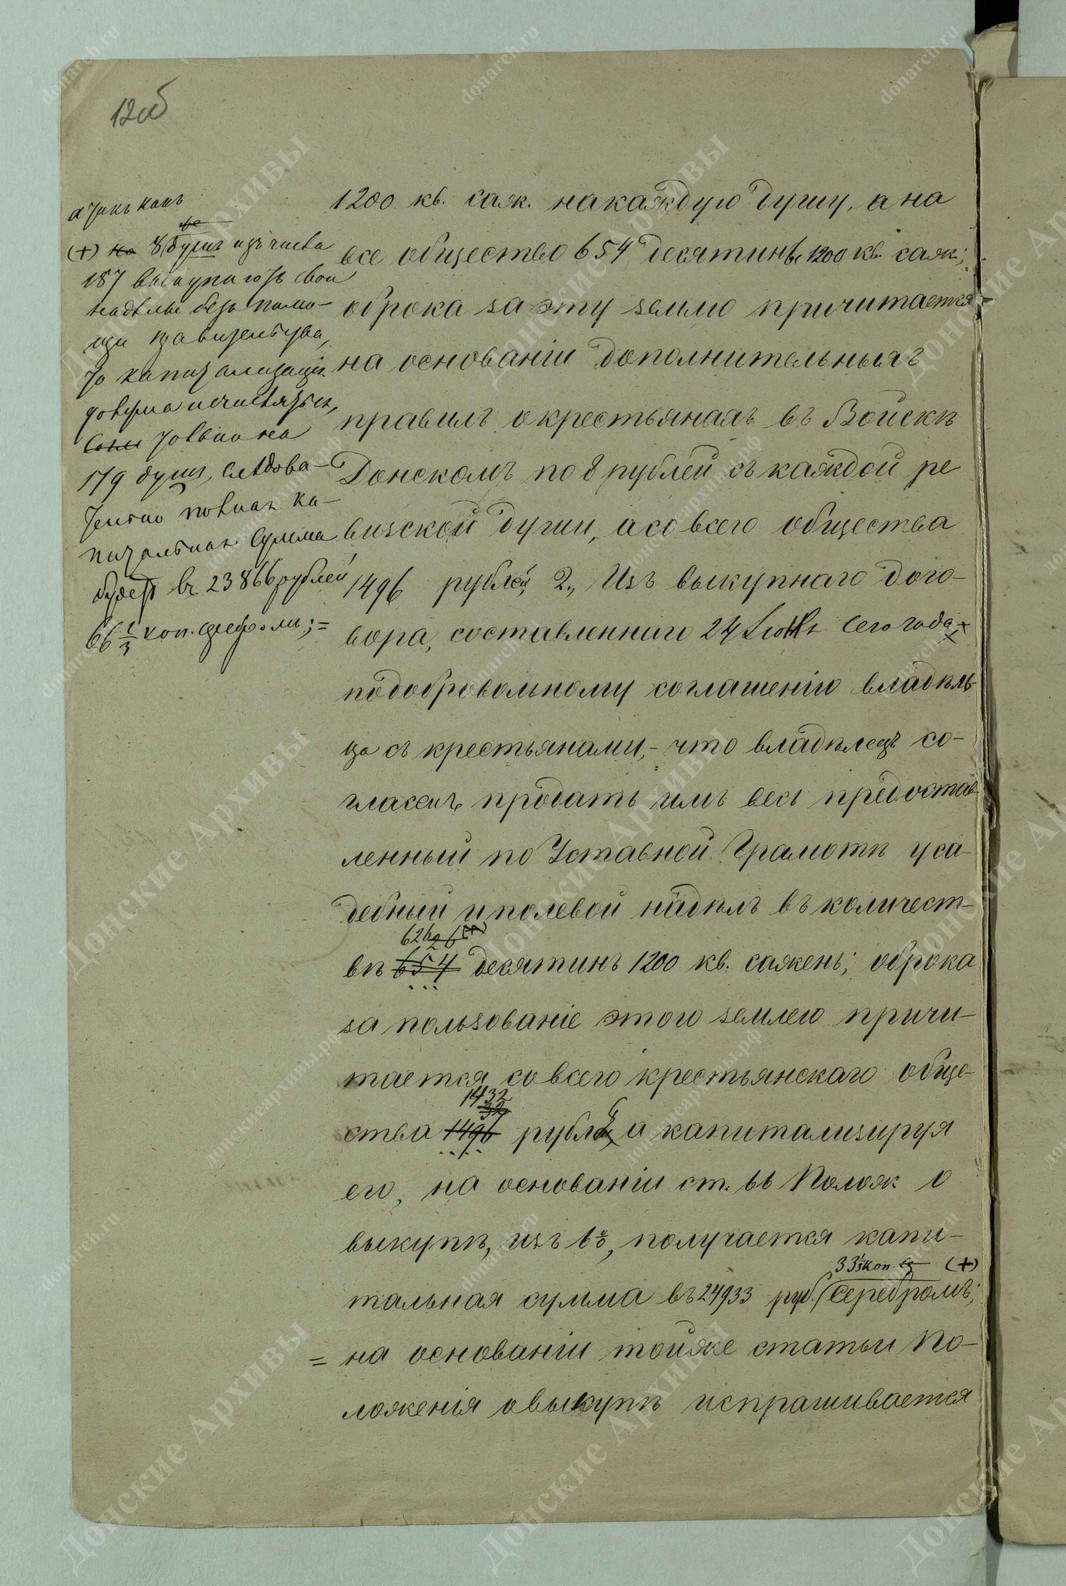 12об
а такъ какъ
(+) на 8 душъ изъ числа
187 выкупаютъ свои
надѣлы безъ помо-
щи правительства,
то капитализація
должна исчисляться,
только на
179 душъ, слѣдова-
тельно полная ка-
питальная сумма
будетъ въ 23866 рублей
66 2/3 коп. серебромъ; =
1200 кв. саж. на каждую душу, а на
все общество 654 десятинъ 1200 кв. саж.;
оброка за эту землю причитается
на основаніи дополнительныхъ
правилъ о крестьянахъ въ Войскѣ
Донскомъ по 8 рублей съ каждой ре
визской души, а со всего общества
1496 рублей, 2., Изъ выкупнаго дого-
вора, составленнаго 24 сего года
по добровольному соглашенію владѣль
ца съ крестьянами, - что владѣлецъ со-
гласенъ продать имъ весь предостав
ленный по Уставной Грамотѣ уса
дебный и полевой надѣлъ въ количест-
626 (+)
вѣ 654 десятинъ 1200 кв. сажень; оброка
за пользованіе этою землею причи-
тается со всего крестьянскаго обще-
1432
ства 1496 рубл и капитализируя
его, на основаніи ст. 66 Полож о
выкупѣ, изъ 6%, получается капи-
33 1/3 коп. (+)
тальная сумма въ 24933 руб. серебромъ;
= на основаніи той же статьи По-
ложенія о выкупѣ испрашивается
Донские Архивы
donarch.ru
донсказархивы.рф